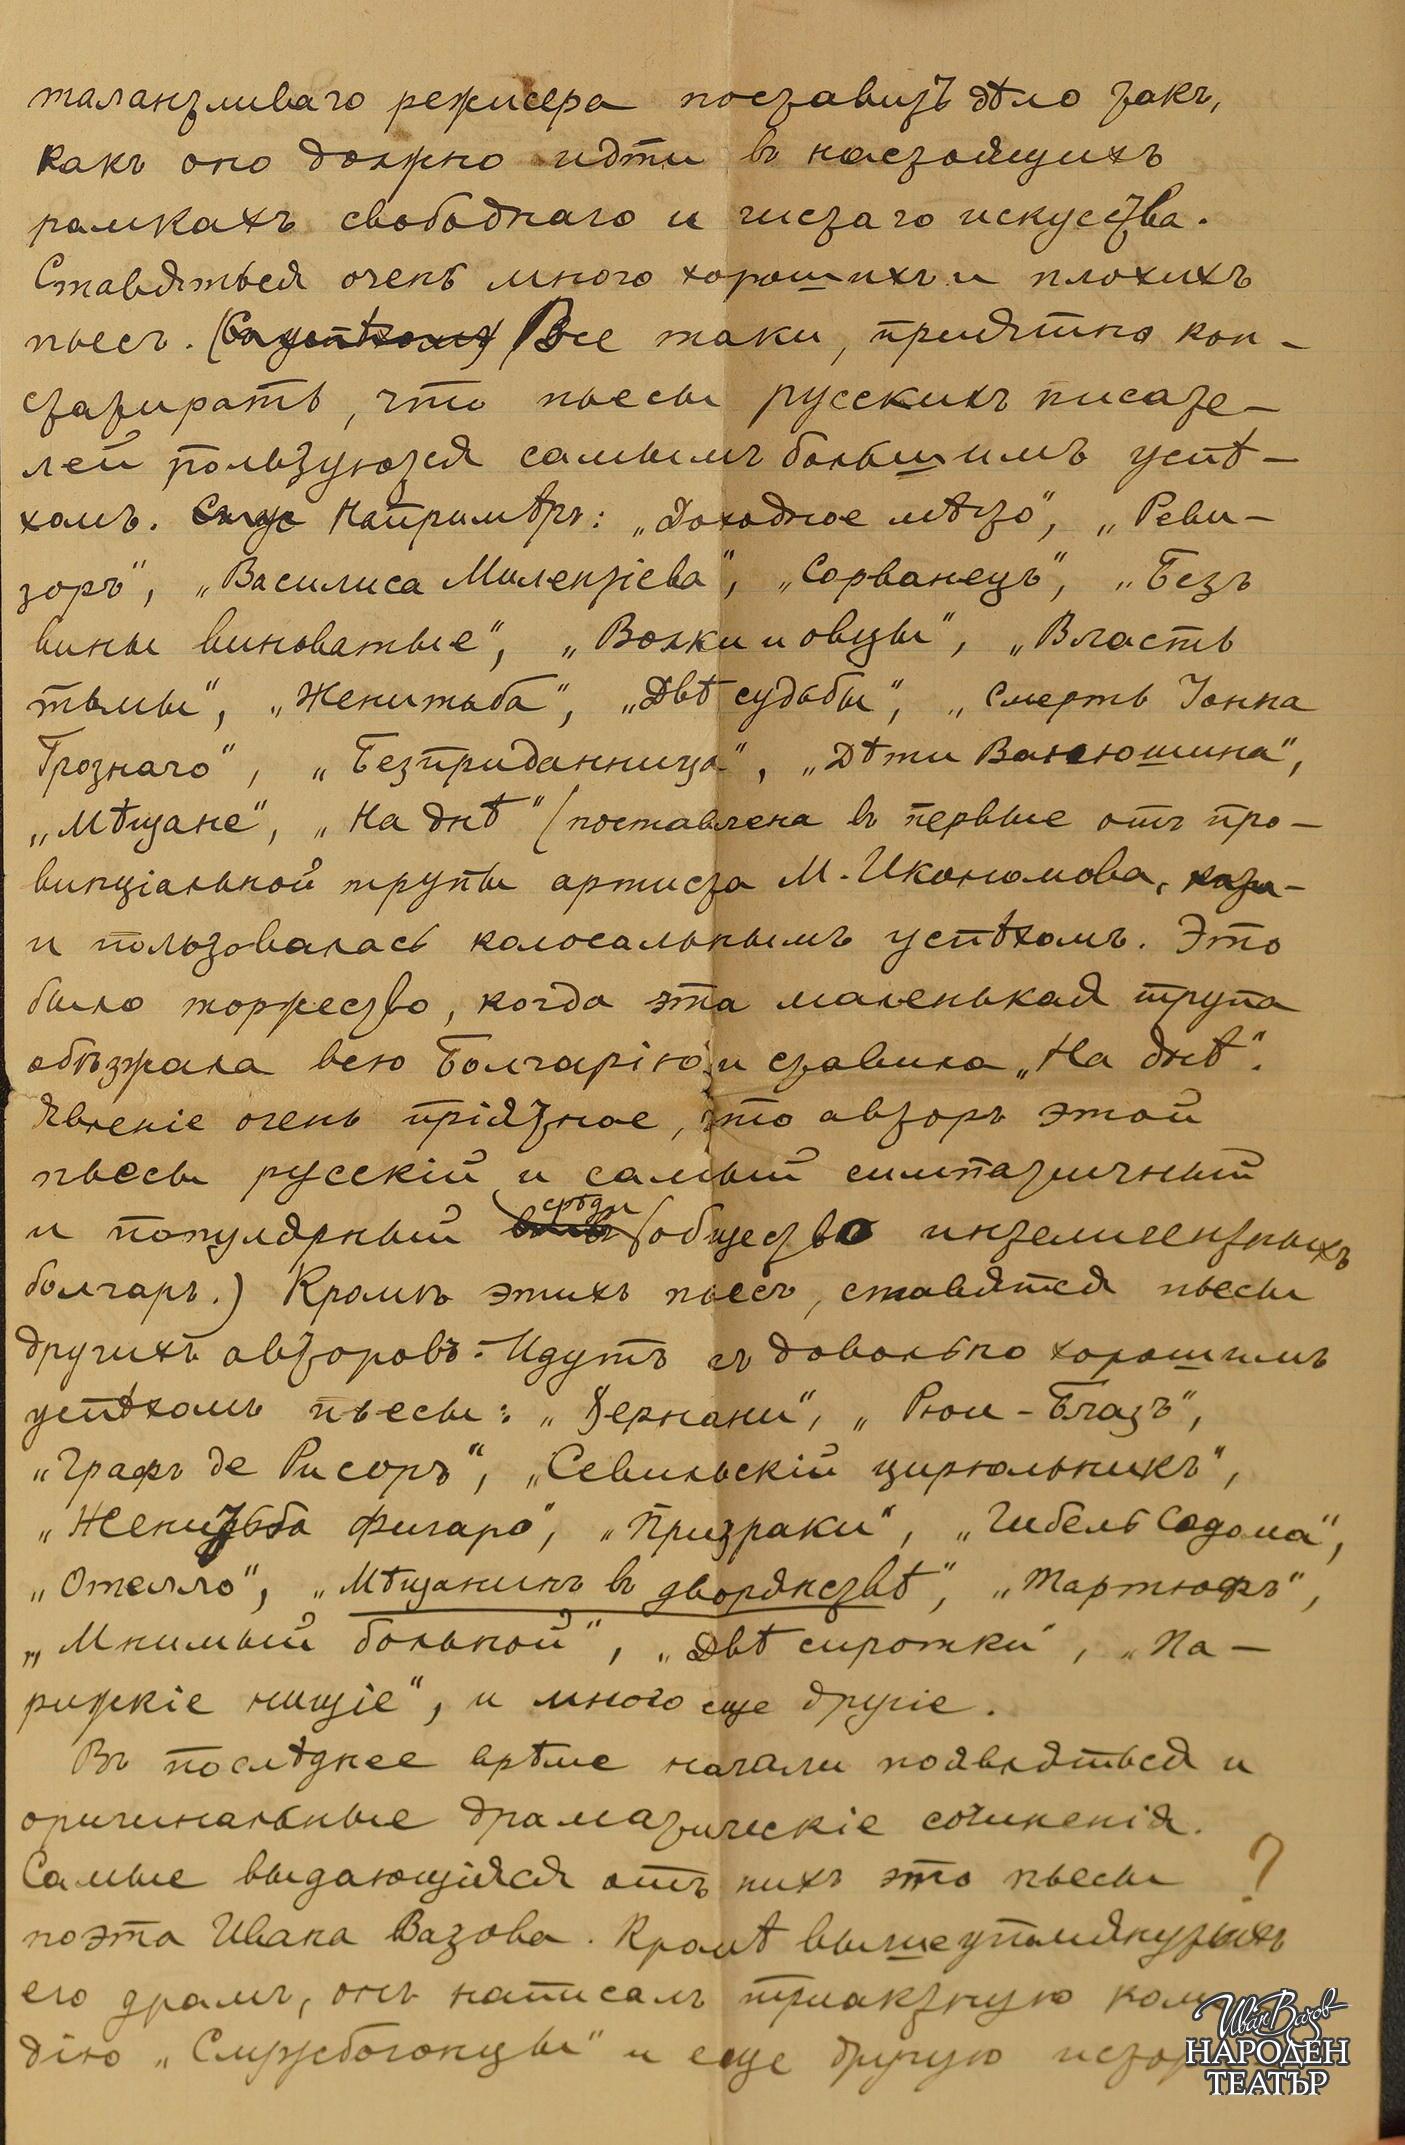 талантливаго режисера поставить дѣло такъ,
какъ оно должно идти въ настоящихъ
рамкахъ свободнаго и чистаго искусства.
Ставяться очень много хорошихъ и плохихъ
пьесъ. Все таки, приятно кон-
статировать, что пьесы русскихъ писате-
лей пользуются самымъ большимъ успѣ-
хомъ. Напримѣръ: „Доходное мѣсто", „Реви-
зоръ", „Василиса Милентіева", „Сорванецъ", „Безъ
вины виноватые", „Волки и овцы", „Власть
тьмы", „Женитьба", „Двѣ судьбы", „Смерть Іоанна
Грознаго", „Безприданница", „Дѣти Ванюшина",
„Мѣщане", „На днѣ" (поставлена въ первые отъ про-
винціальной трупы артиста М. Икономова,
и пользовалась колосальнымъ успѣхомъ. Это
было торжество, когда эта маленькая трупа
объезжала всю Болгарію и ставила „На днѣ".
Явленіе очень пріятное, что авторъ этой
пьесы русскій и самый симпатичный
и популярный среди общество интелигентныхъ
болгаръ.) Кромѣ этихъ пьесъ, ставятся пьесы
другихъ авторовъ. Идутъ съ довольно хорошимъ
успѣхомъ пьесы: „Эрнани", „Рюи-Блазъ",
„Графъ де Рисоръ", „Севильскій цирюльникъ",
„Женитьба Фигаро", „Призраки", „Гибель Содома",
„Отелло", „Мѣщанинъ въ дворянствѣ", „Тартюфъ",
„Мнимый больной", „Двѣ сиротки", „Па-
рижкіе нищіе", и много еще другіе.
Въ послѣднее врѣме начали появляться и
оригинальные драматическіе сочиненія.
Самые выдающіяся отъ нихъ это пьесы ?
поэта Ивана Вазова. Кромѣ вышеупомянутыхъ
его драмъ, онъ написалъ триактную коме-
дію „Службогонцы" и еще другую
Иван Вазов
НАРОДЕН
ТЕАТЪР